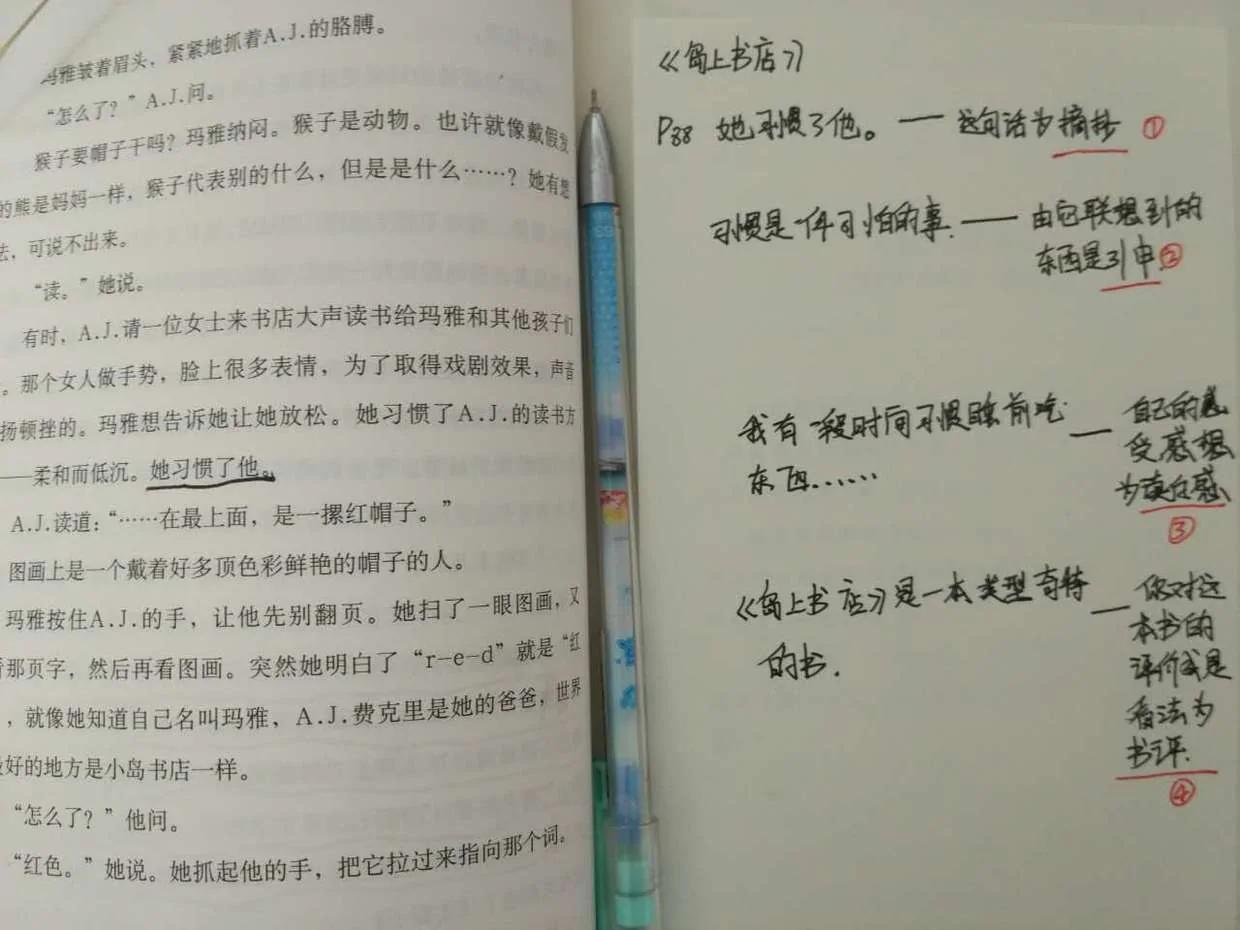 玛雅皱着眉头，紧紧地抓着A.J.的胳膊。
“怎么了？”A.J.问。
猴子要帽子干吗？玛雅纳闷。猴子是动物。也许就像戴假发
的熊是妈妈一样，猴子代表别的什么，但是是什么……？她有想
法，可说不出来。
“读。”她说。
有时，A.J.请一位女士来书店大声读书给玛雅和其他孩子们
。那个女人做手势，脸上很多表情，为了取得戏剧效果，声音
扬顿挫的。玛雅想告诉她让她放松。她习惯了A.J.的读书方
——柔和而低沉。她习惯了他。
A.J.读道：“……在最上面，是一摞红帽子。”
图画上是一个戴着好多顶色彩鲜艳的帽子的人。
玛雅按住A.J.的手，让他先别翻页。她扫了一眼图画，又
看那页字，然后再看图画。突然她明白了“r-e-d”就是“红
，就像她知道自己名叫玛雅，A.J.费克里是她的爸爸，世界
最好的地方是小岛书店一样。
“怎么了？”他问。
“红色。”她说。她抓起他的手，把它拉过来指向那个词。
《岛上书店》
P88 她习惯了他。—— 这句话为摘抄 ①
习惯是一件可怕的事.—— 由它联想到的
东西是引申 ②
我有一段时间习惯睡前吃
东西……
—— 自己的感
受感想
为读后感
③
《岛上书店》是一本类型奇特
的书.
—— 你对这
本书的
评价或是
看法为
书评.
④